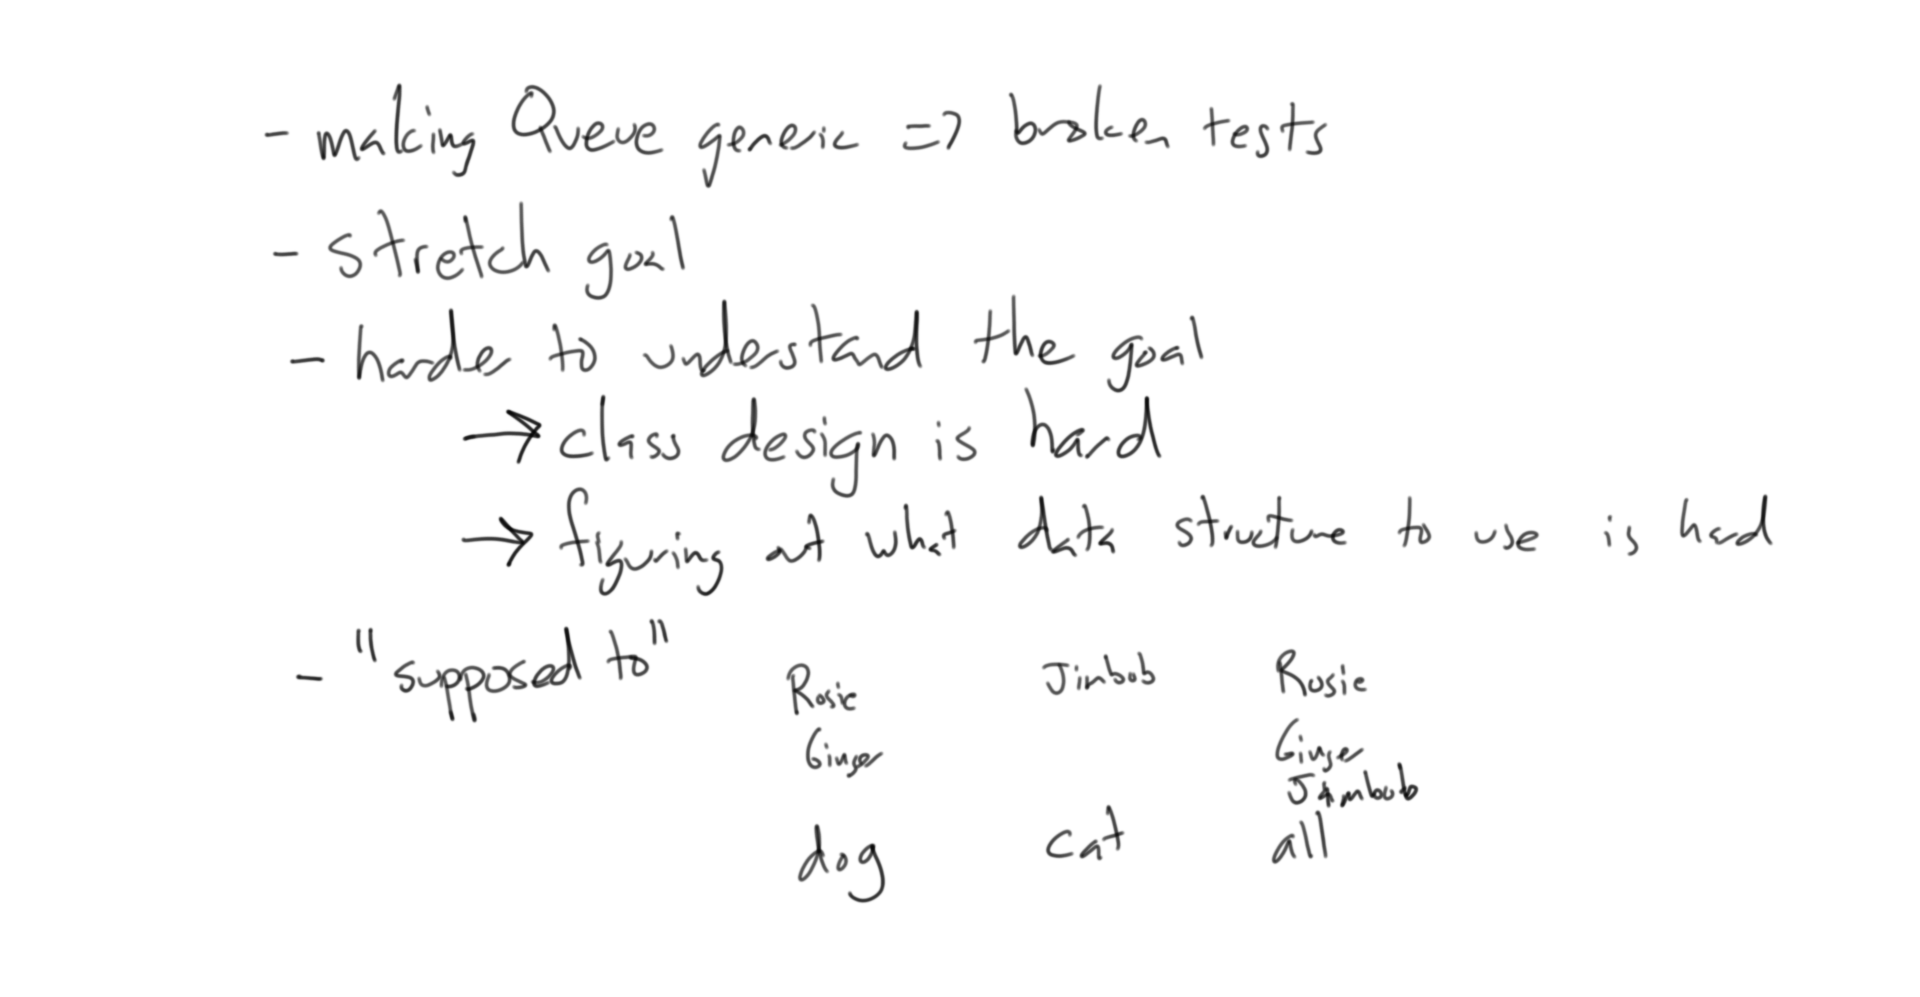 - making Queue generic => broken tests
- stretch goal
- harder to understand the goal
→ class design is hard
→ figuring out what data structure to use is hard
- "supposed to"
Rosie Jimbob Rosie
Ginger Ginger
Jimbob
dog cat all